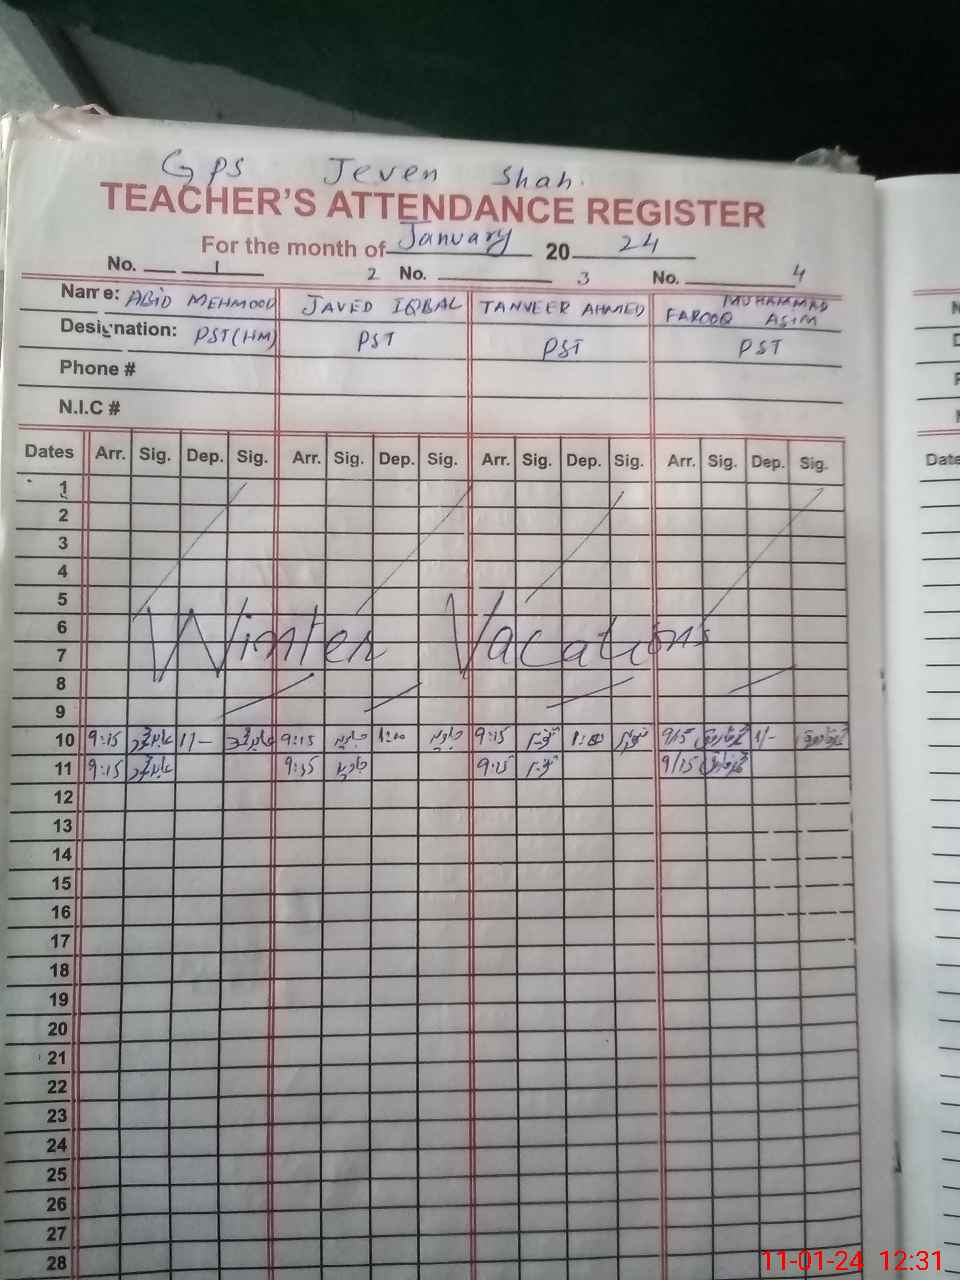 GPS Jeven Shah.
TEACHER'S ATTENDANCE REGISTER
For the month of January 2024
No. 1 2 No. 3 No. 4
Name: ABID MEHMOOD JAVED IQBAL TANVEER AHMED MUHAMMAD FAROOQ ASIM
Designation: PST(HM) PST PST PST
Phone #
N.I.C #
Dates Arr. Sig. Dep. Sig. Arr. Sig. Dep. Sig. Arr. Sig. Dep. Sig. Arr. Sig. Dep. Sig. Date
1
2
3
4
5
6
Winter Vacations
7
8
9
10 9:15 عابد محمود 1/- عابد محمود 9:15 جاوید 1:00 جاوید 9:15 تنویر 1:00 تنویر 9/15 1/-
11 9:15 عابد محمود 9:15 جاوید 9:15 تنویر 9/15
12
13
14
15
16
17
18
19
20
21
22
23
24
25
26
27
28
11-01-24 12:31